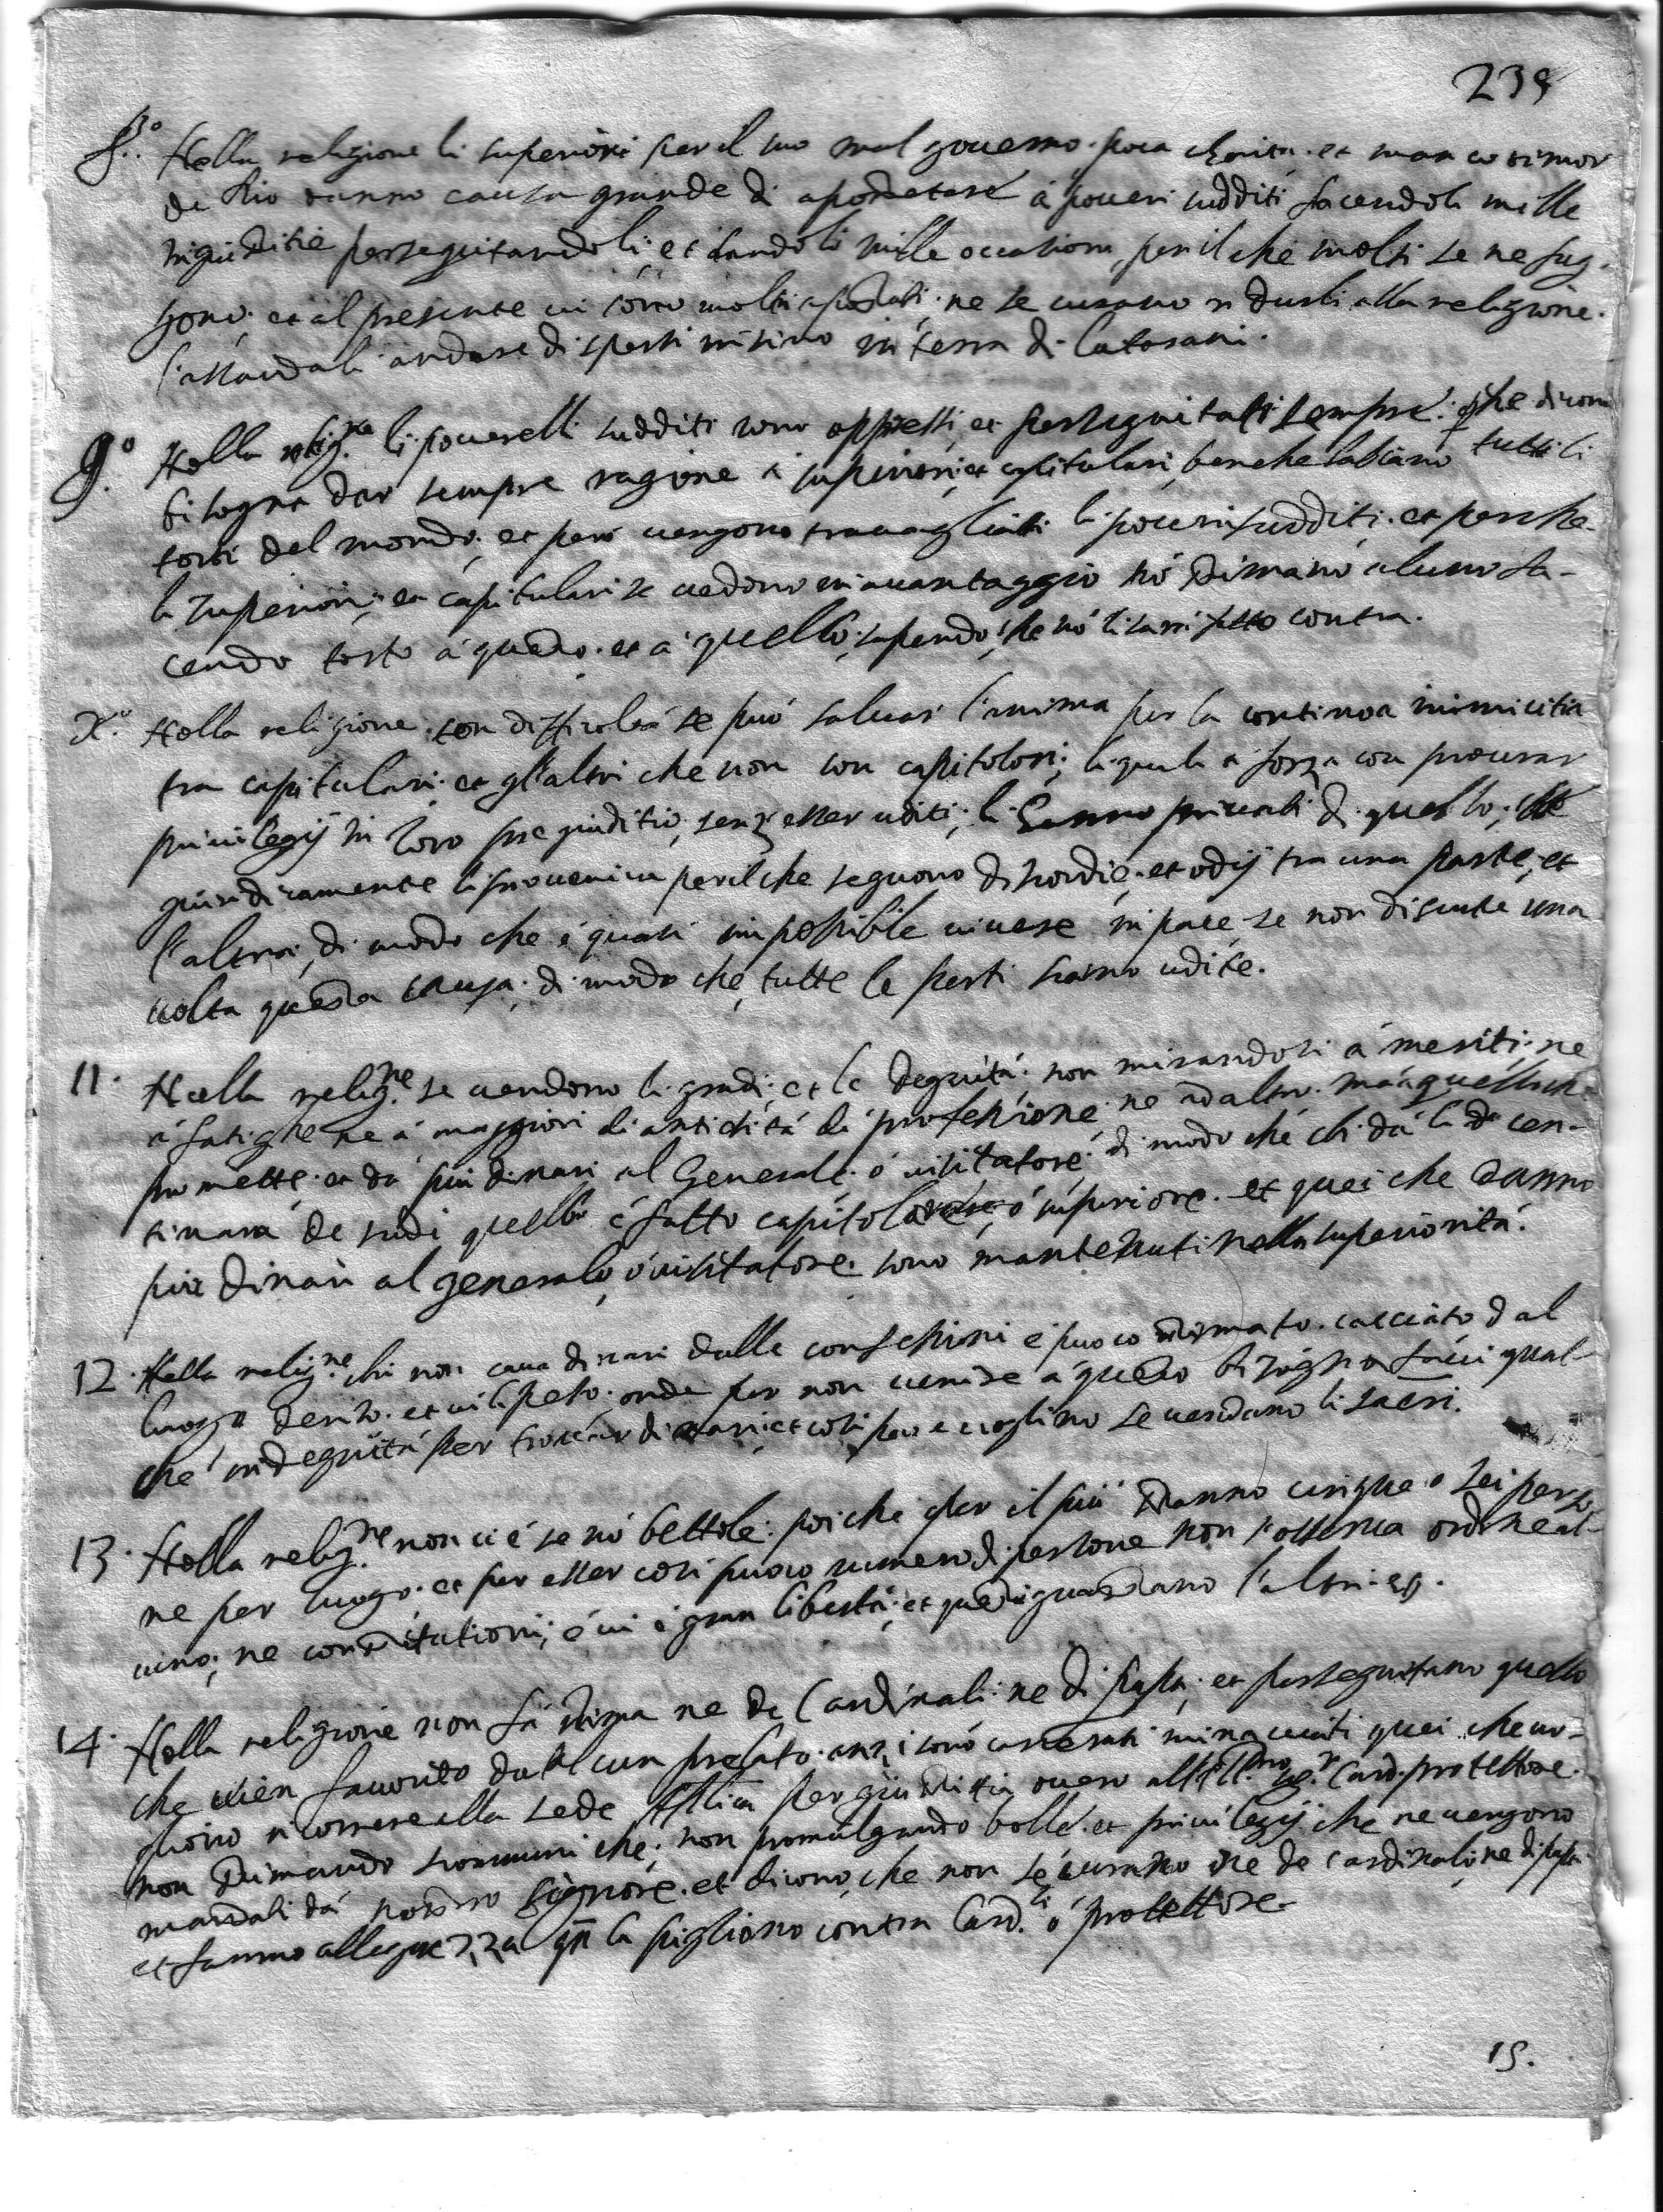 239
8.° Nella religione li superiori per il suo mal governo. poca charita. et manco timor
de Dio danno causa grande di apostatare à poveri sudditi facendoli mille
ingiustitie perseguitandoli, et dandoli mille occasioni, per il che molti se ne fug-
gono. et al presente vi sono molti apostati. ne se curano ridurli alla religione.
lassandoli andare dispersi insino in terra di
9.° Nella relig.ne li poverelli sudditi sono oppressi, et perseguitati sempre. che dicono
bisogna dar sempre ragione à superiori, et capitulari, benche habiano tutti li
torti del mondo. et però vengono travagliati li poveri sudditi. et perche
li superiori, et capitulari se vedono in avantaggio nõ stimano alcuno fa-
cendo torto à questo. et à quello, sapendo che nõ li sarà fatto contra.
X.° Nella religione con difficoltà se può salvar l'anima per la continoa inimicitia
tra capitulari et gl'altri che non son capitolari; li quali à forza con procurar
privilegij in loro pregiuditio, senz'esser uditi, li hanno privati di quello, che
giuridicamente li proveniva per il che seguono discordie, et odij tra una parte, et
l'altra, di modo che è quasi impossibile vivere in pace, se non discute una
volta questa causa. di modo che tutte le parti siano udite.
11. Nella relig.ne se vendono li gradi, et le degnità. non mirandosi à meriti, ne
à fatighe ne à maggiori di antichità di professione. ne ad altro. mà à quello che
promette. et dà più dinari al Generale. ò visitatore. di modo che chi dà le cen-
tinara de scudi quello è fatto capitolare, ò superiore. et quei che danno
più dinari al generale, ò visitatore. sono mantenuti nella superiorità.
12. Nella relig.ne chi non cava dinari dalle confessioni è puoco stimato. cacciato dal
luogo deriso. et vilipeso. onde per non venire à questo bisogna facci qual-
che indegnità per trovar dinari, et così può e vogliono se vendano li sacri.
13. Nella relig.ne non ci è se nõ bettole. poiche per il più stanno cinque o sei perso-
ne per luogo. et per esser così puoco numero di persone non s'osserva ordine al-
cuno, ne constitutioni, è vi è gran libertà, et questi guastano l'altri.
14. Nella religione non fà stima ne de Cardinali. ne di Papa. et perseguitano quello
che vien favorito da alcun prelato. anzi sonò carcerati minacciati quei che vo-
gliono ricorrere alla sede Apostlica per giustitia overo all'Ill.mo Sig.r Card. protettore.
non stimando scommuniche. non promulgando bolle. et privilegij che ne vengono
mandati dà nostro signore. et dicono che non se curano ne de cardinali, ne di papa.
et fanno allegrezza qñ la pigliono contra Card.li ò protettore.
15.